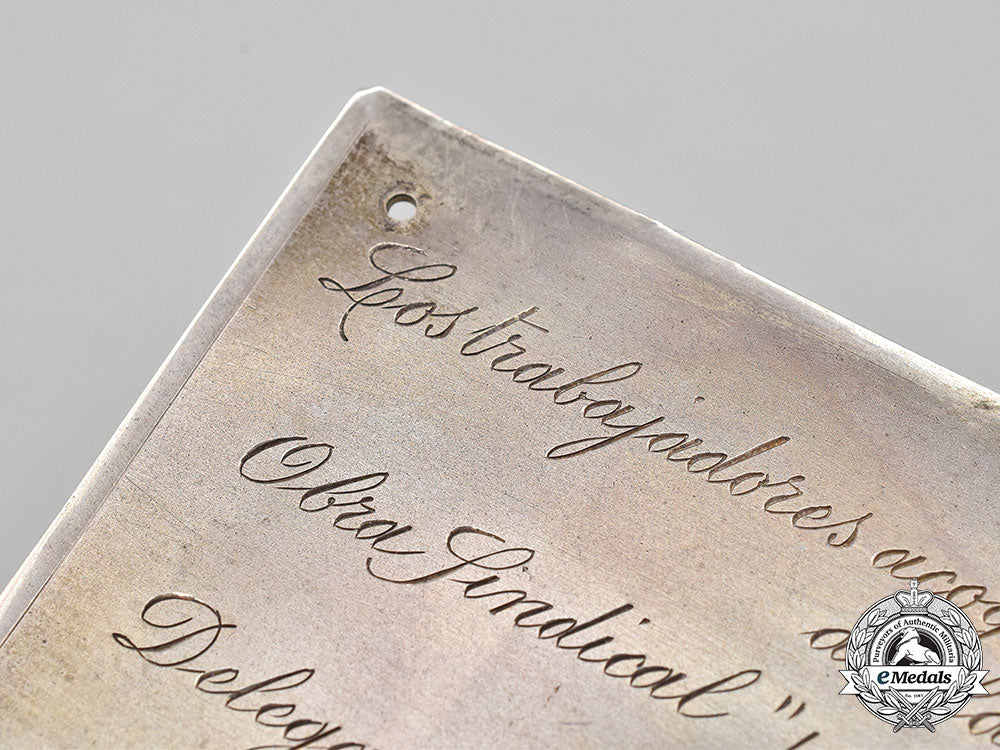 Los trabajadores acog
Obra Sindical "
Deleg
Purveyors of Authentic Militaria
eMedals